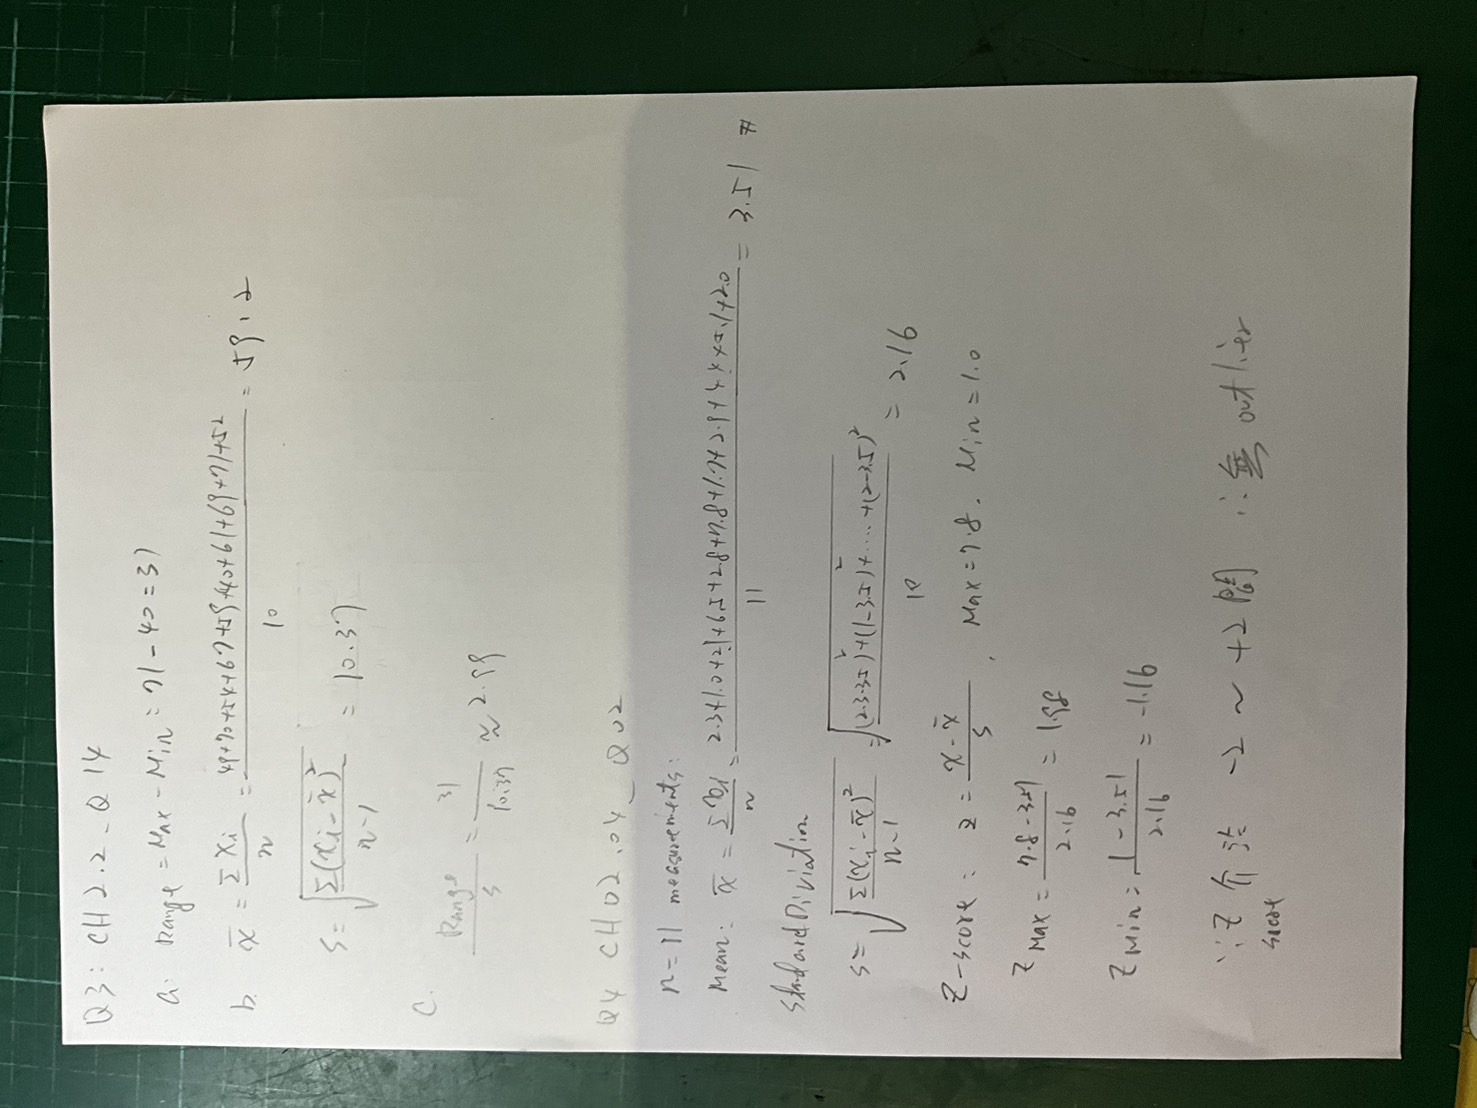 Q3: CH 2.2 - Q14
a. Range = Max - Min = 71 - 40 = 31
b. x̄ = Σxi / n = 49+70+54+67+59+40+61+69+71+52 / 10 = 59.2
s = √(Σ(xi - x̄)² / n-1) = 10.37
c. Range / s = 31 / 10.37 ≈ 2.99
Q4 CH02.04_Q02
n = 11 measurements:
Mean: x̄ = / n = 2.3+1.0+2.1+6.5+2.8+7.8+1.7+2.9+4.4+5.1+2.0 / 11 = 3.51 #
Standard Diviation
s = √(Σ(xi - x̄)² / n-1) = √((2.3-3.5)²+(1-3.5)²+...+(2-3.5)² / 10) = 2.16
Z-score: z = x - x̄ / s , Max = 7.8, Min = 1.0
Z Max = 7.8 - 3.51 / 2.16 = 1.98
Z Min = 1 - 3.51 / 2.16 = -1.16
∵ Z score 介於 -2 ~ +2 間 ∴ 無 outlier